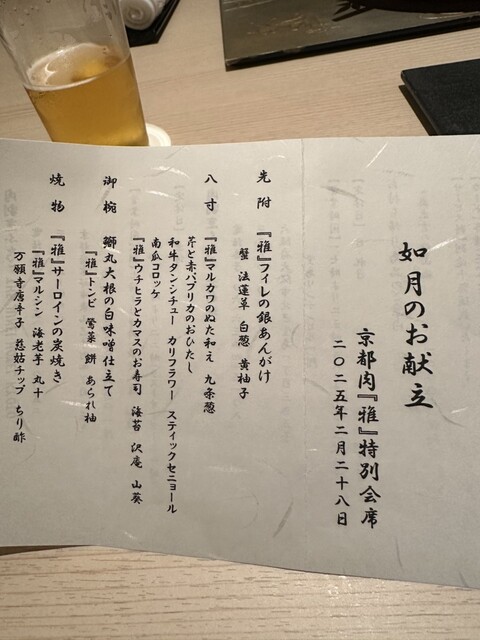 如月のお献立
京都肉『雅』特別会席
二〇二五年二月二十八日
先附 『雅』フィレの銀あんがけ
蟹 法蓮草 白葱 黄柚子
八寸 『雅』マルカワのぬた和え 九条葱
芹と赤パプリカのおひたし
和牛タンシチュー カリフラワー スティックセニョール
南瓜コロッケ
『雅』ウチヒラとカマスのお寿司 海苔 沢庵 山葵
御椀 鰤丸大根の白味噌仕立て
『雅』トンビ 鶯菜 餅 あられ柚
焼物 『雅』サーロインの炭焼き
『雅』マルシン 海老芋 丸十
万願寺唐辛子 慈姑チップ ちり酢